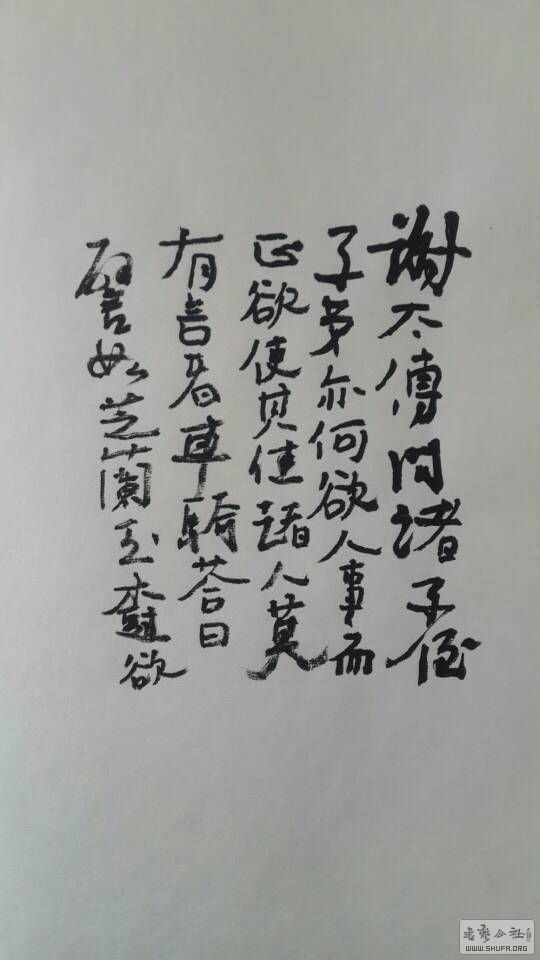 謝太傅問諸子侄
子弟亦何欲人事而
正欲使其佳諸人莫
有言者車騎荅曰
譬如芝蘭玉樹欲
書藝公社
WWW.SHUFA.ORG